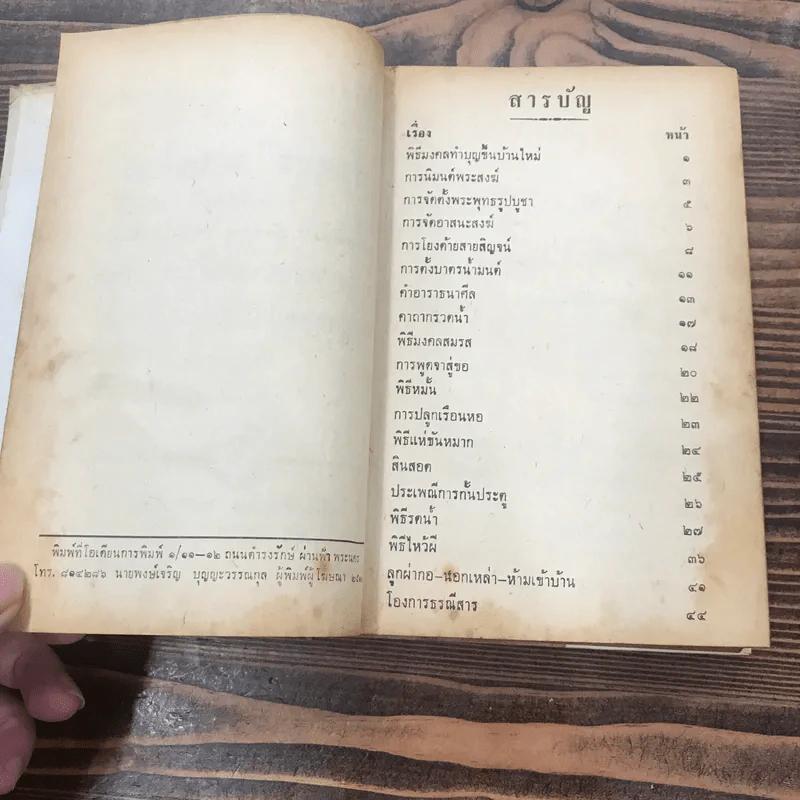 พิมพ์ที่โอเดียนการพิมพ์ ๑/๑๑—๑๒ ถนนดำรงรักษ์ ผ่านฟ้า พระนคร
โทร. ๘๑๔๒๘๖ นายพงษ์เจริญ บุญญะวรรณกุล ผู้พิมพ์ผู้โฆษณา
สารบัญ
เรื่อง หน้า
พิธีมงคลทำบุญขึ้นบ้านใหม่ ๑
การนิมนต์พระสงฆ์ ๓
การจัดตั้งพระพุทธรูปบูชา ๕
การจัดอาสนะสงฆ์ ๖
การโยงด้ายสายสิญจน์ ๘
การตั้งบาตรน้ำมนต์ ๑๑
คำอาราธนาศีล ๑๓
คาถากรวดน้ำ ๑๗
พิธีมงคลสมรส ๑๘
การพูดจาสู่ขอ ๒๐
พิธีหมั้น ๒๒
การปลูกเรือนหอ ๒๓
พิธีแห่ขันหมาก ๒๔
สินสอด ๒๕
ประเพณีการกั้นประตู ๒๖
พิธีรดน้ำ ๒๗
พิธีไหว้ผี ๓๖
ลูกผ่ากอ—นอกเหล่า—ห้ามเข้าบ้าน ๔๑
โองการธรณีสาร ๔๔